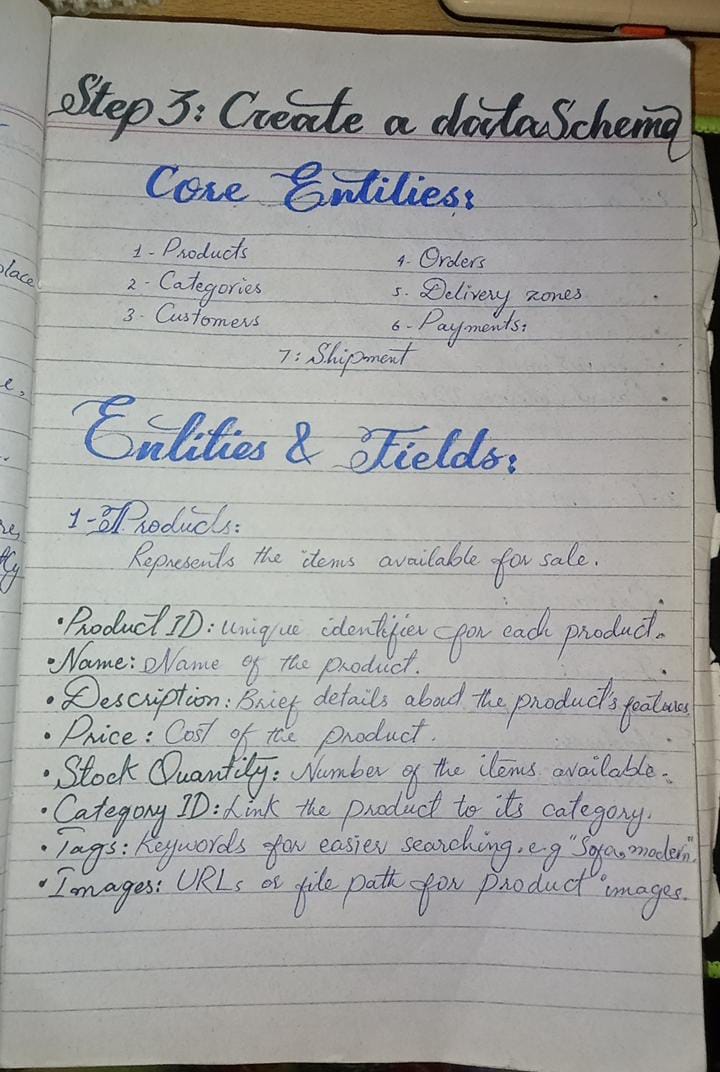 Step 3: Create a data Schema
Core Entities:
1- Products
2- Categories
3- Customers
4- Orders
5- Delivery zones
6- Payments:
7: Shipment
Entities & Fields:
1- Products:
Represents the items available for sale.
• Product ID: unique identifier for each product.
• Name: Name of the product.
• Description: Brief details about the product's features
• Price: Cost of the product.
• Stock Quantity: Number of the items available.
• Category ID: Link the product to its category.
• Tags: Keywords for easier searching. e.g "Sofa, modern".
• Images: URLs or file path for product images.
place
e,